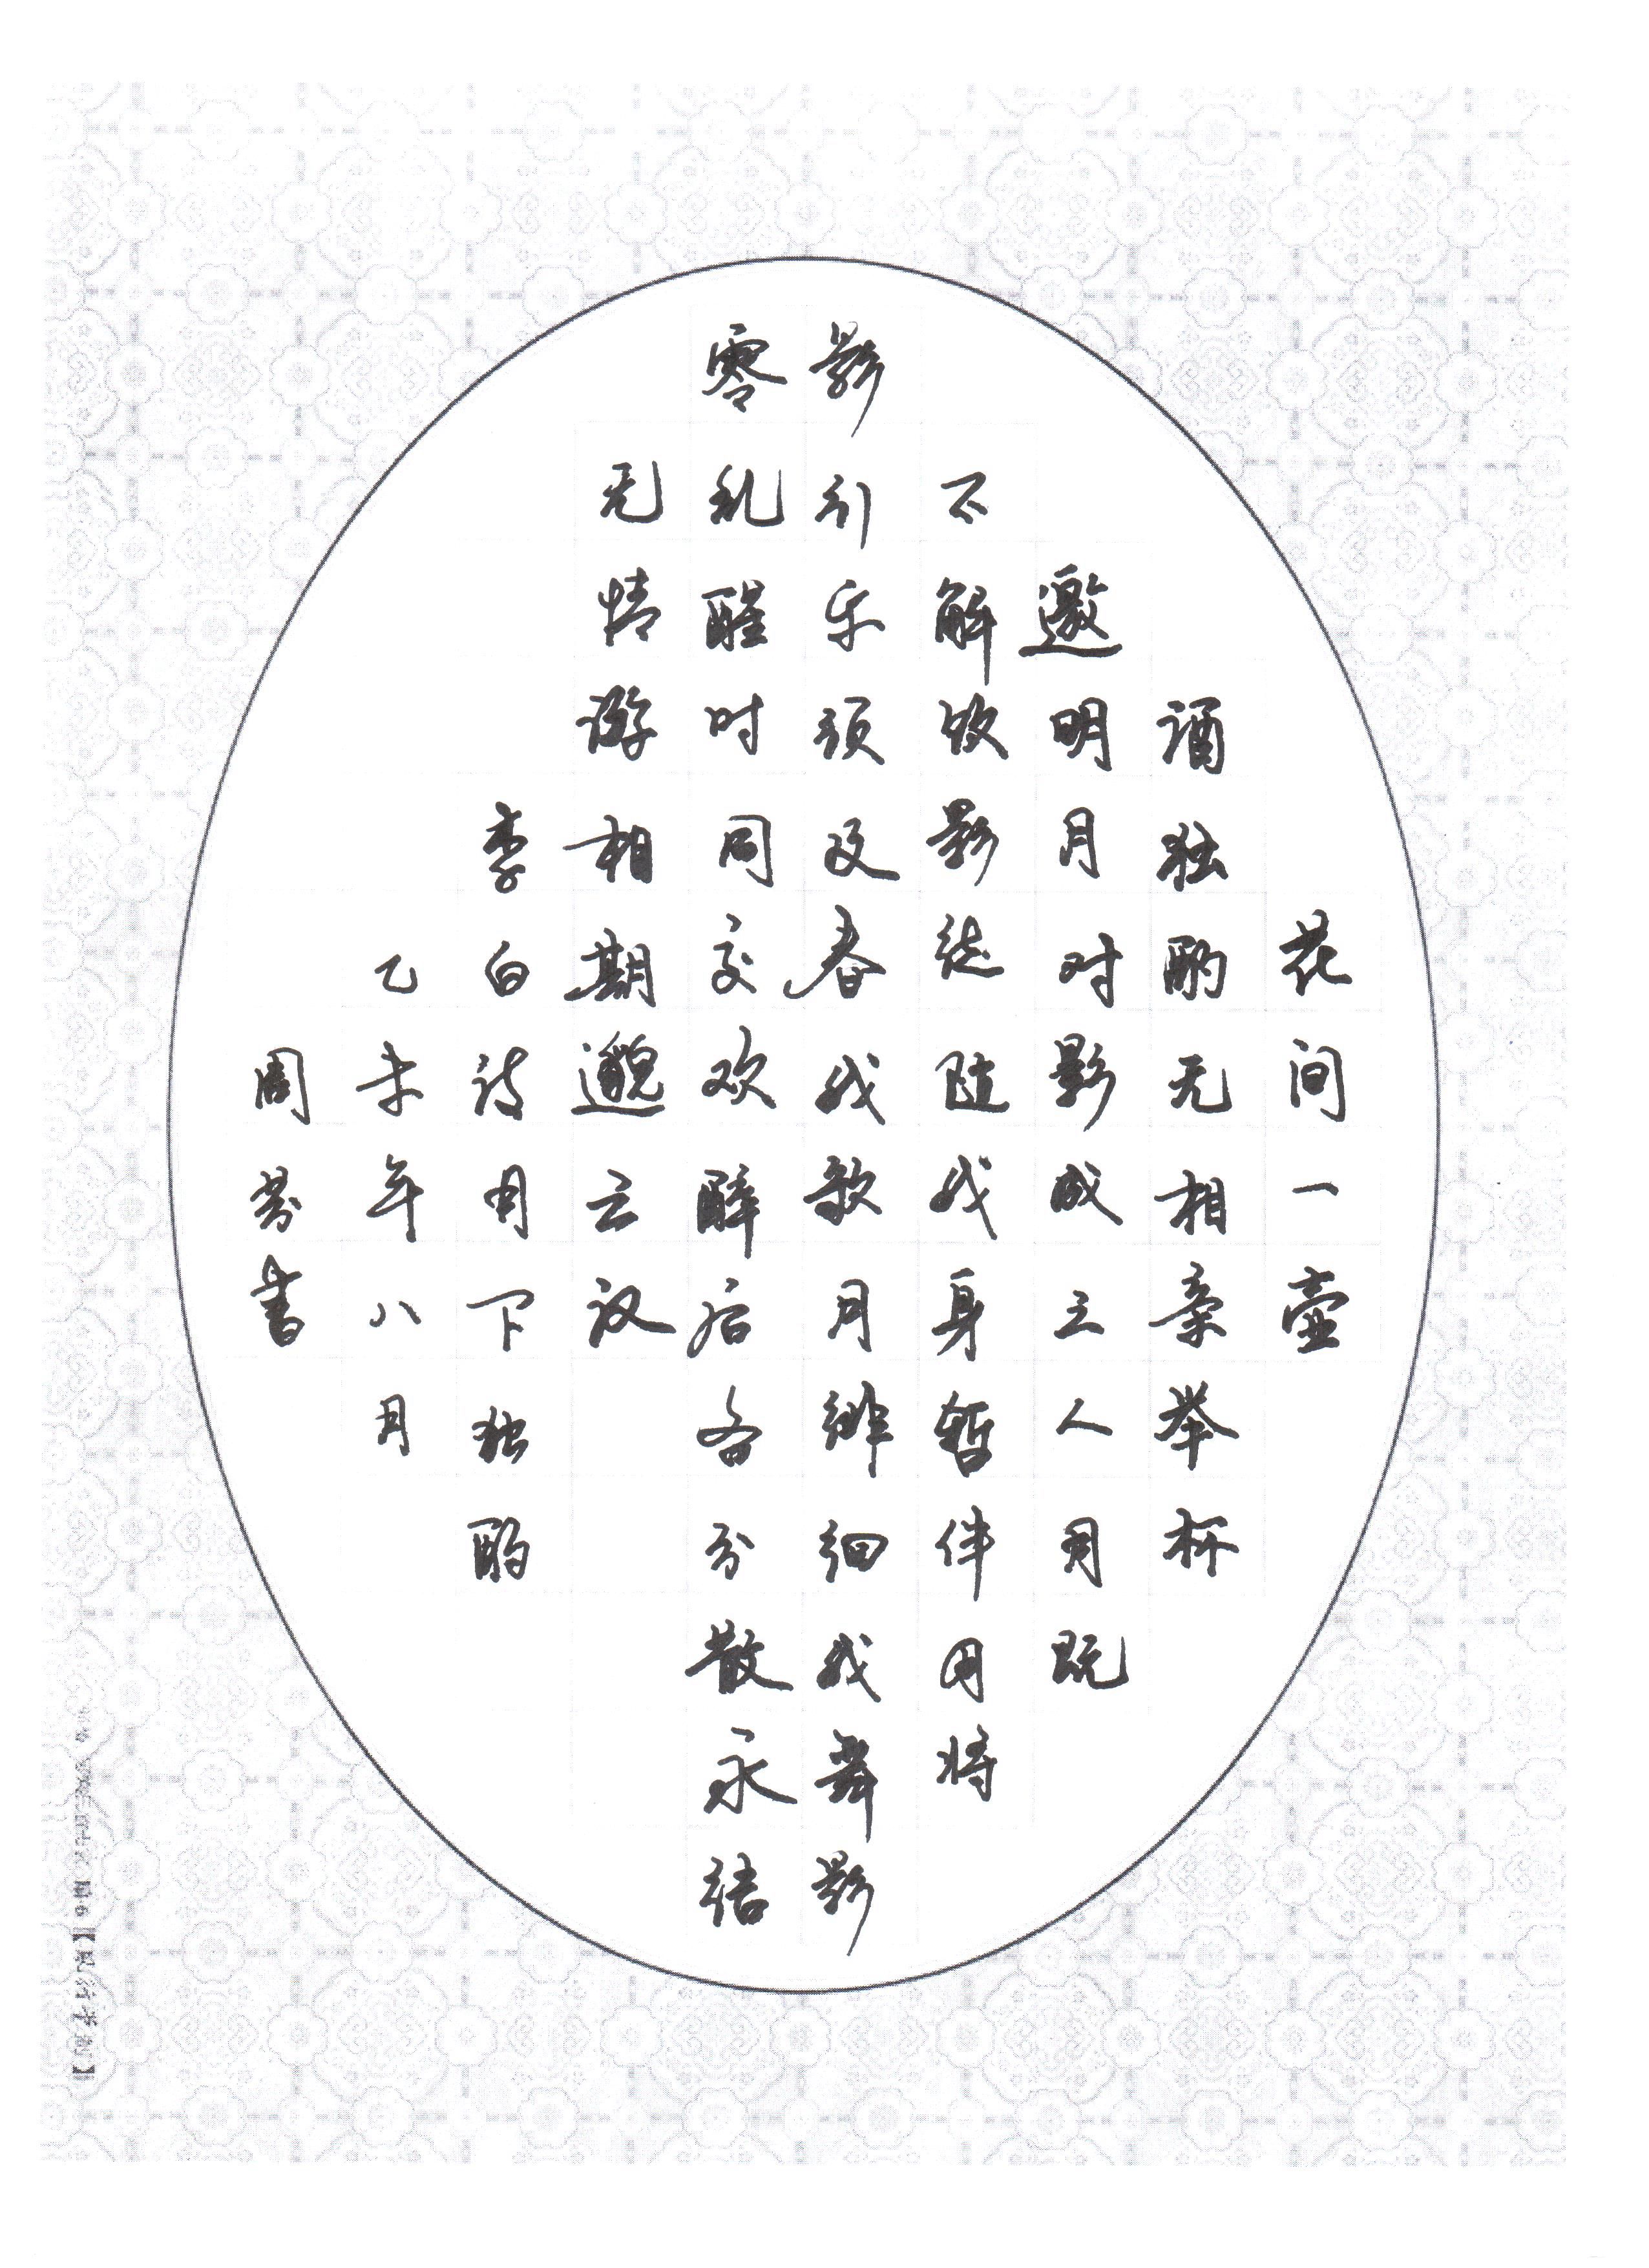 花间一壶
酒独酌无相亲举杯
邀明月对影成三人月既
不解饮影徒随我身暂伴月将
影行乐须及春我歌月徘徊我舞影
零乱醒时同交欢醉后各分散永结
无情游相期邈云汉
李白诗月下独酌
乙未年八月
周芬书